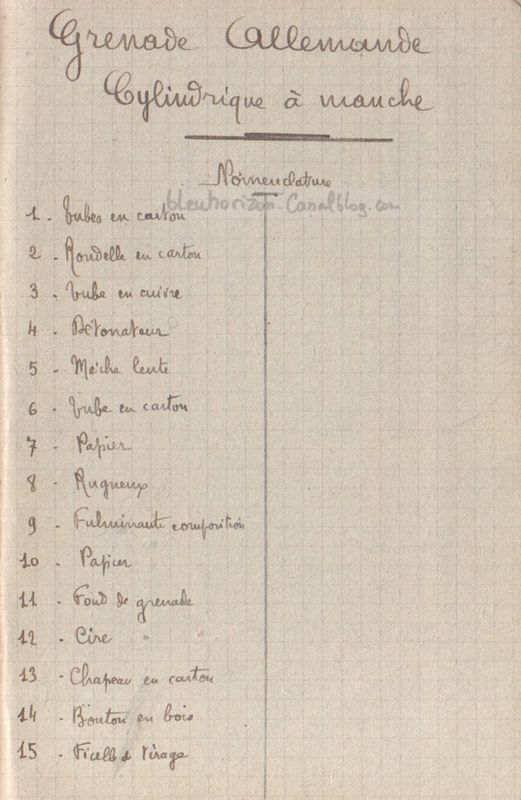 Grenade Allemande
Cylindrique à manche
Nomenclature
bleuhorizon.Canalblog.com
1 - Tubes en carton
2 - Rondelle en carton
3 - Tube en cuivre
4 - Détonateur
5 - Mèche lente
6 - Tube en carton
7 - Papier
8 - Rugueux
9 - Fulminante composition
10 - Papier
11 - Fond de grenade
12 - Cire
13 - Chapeau en carton
14 - Bouton en bois
15 - Ficelle de tirage